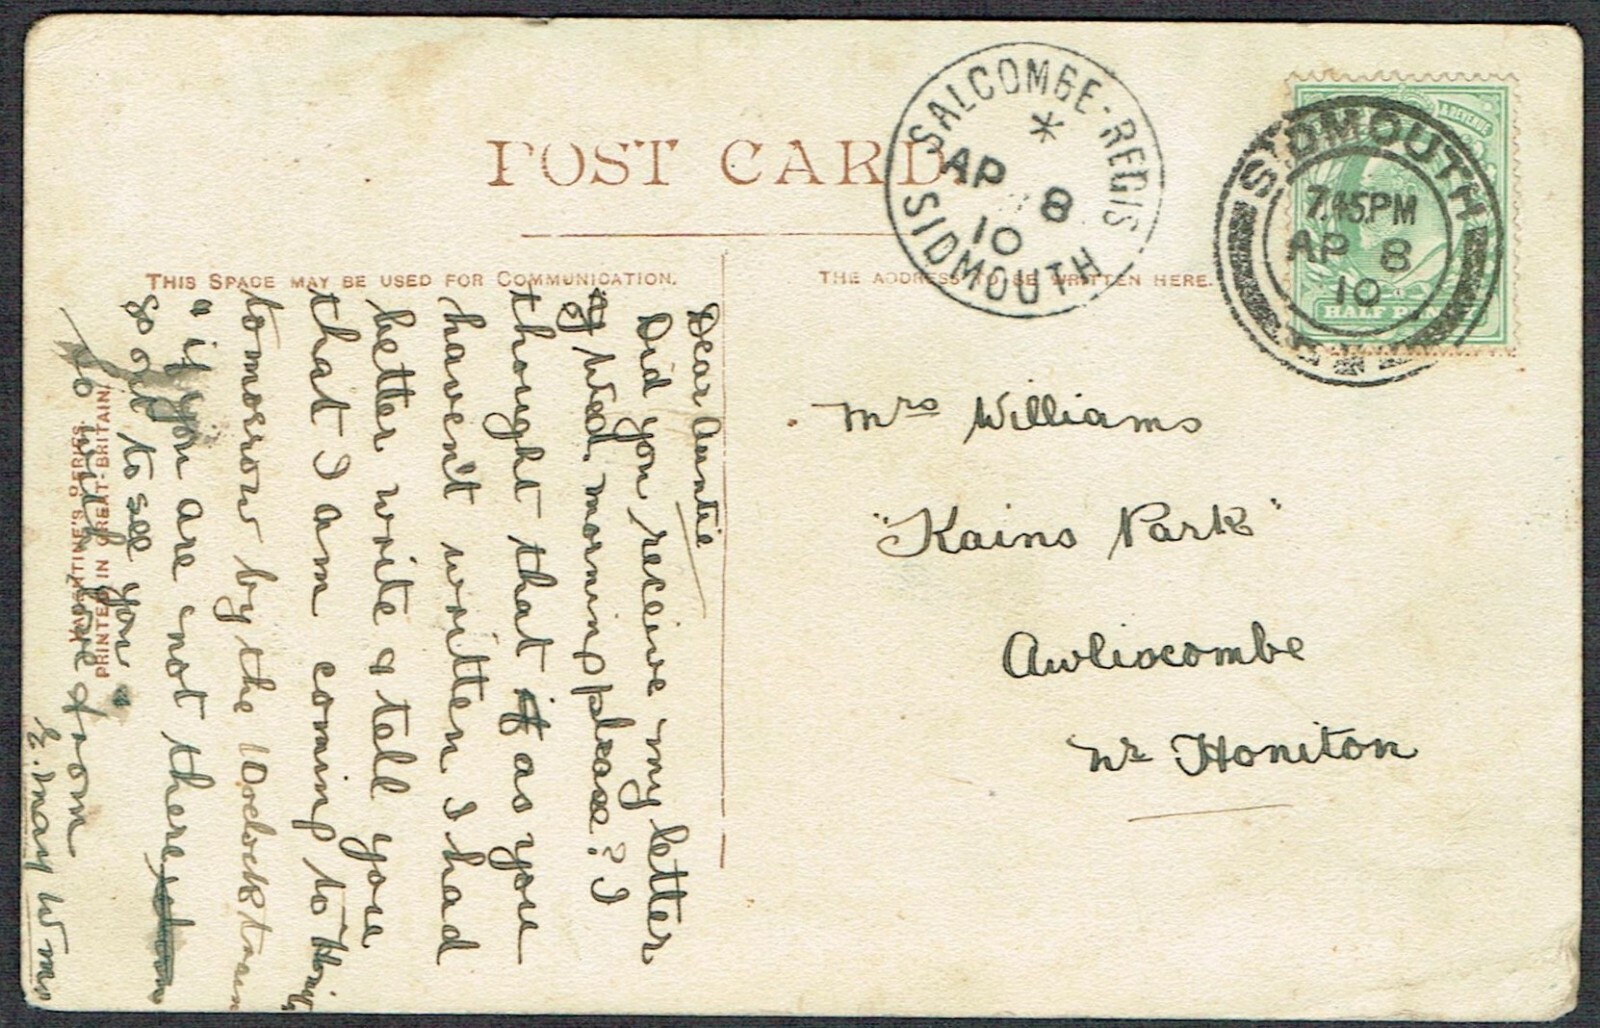 POST CARD.
THIS SPACE MAY BE USED FOR COMMUNICATION.
THE ADDRESS TO BE WRITTEN HERE.
SALCOMBE-REGIS
*
AP 8
10
SIDMOUTH
SIDMOUTH
7.45PM
AP 8
10
& REVENUE
HALF PENNY
Mrs Williams
"Kains Park"
Awliscombe
Nr Honiton
Dear Auntie
Did you receive my letter
Wed. morning please? I
thought that as you
haven't written I had
better write & tell you
that I am coming to Honit
tomorrow by the 10 oclock train
"if you are not there
go out to see you"
With love from
E. May Wms
VALENTINE'S SERIES
PRINTED IN GREAT BRITAIN.